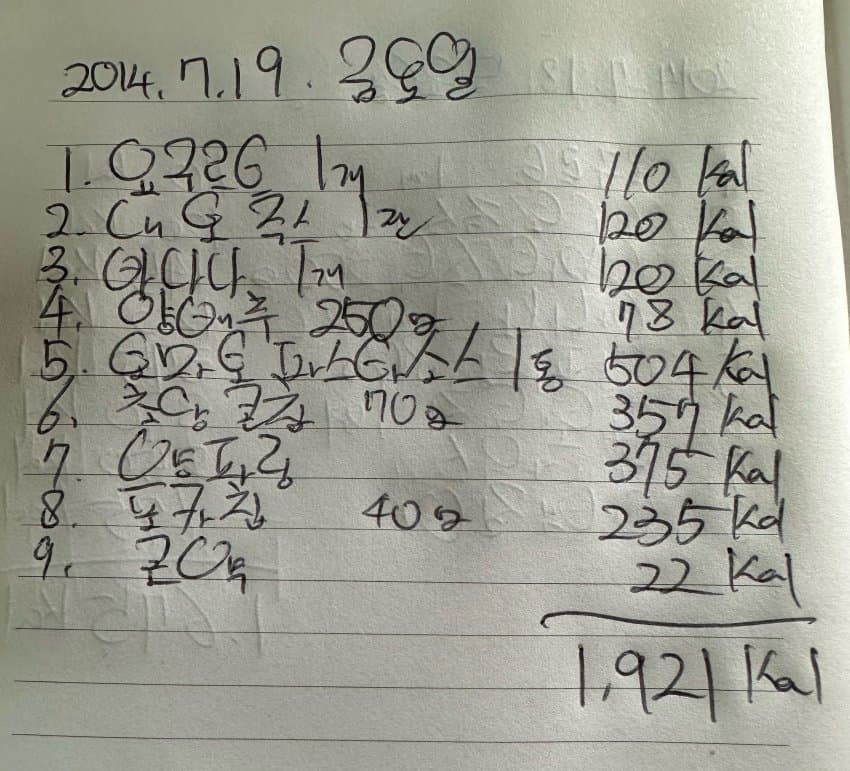 2014.7.19.
1. 요구르트 1개 110 Kal
2. 1잔 120 Kal
3. 바나나 1개 120 Kal
4. 양배추 250g 78 Kal
5. 토마토 파스타소스 1통 504 Kal
6. 70g 357 Kal
7. 양파링 375 Kal
8. 40g 235 Kal
9. 곤약 22 Kal
1,921 Kal